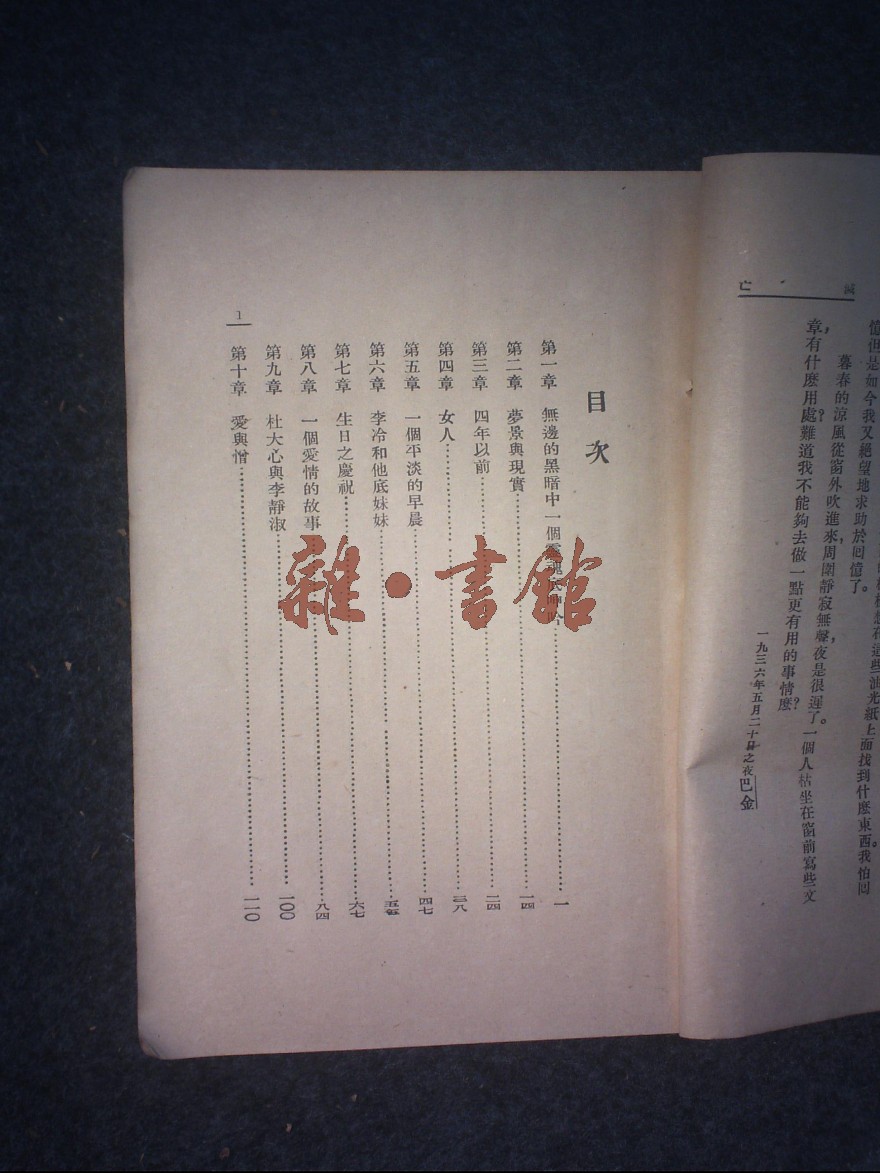 滅亡
憶但是如今我又絕望地求助於回憶了。
暮春的涼風從窗外吹進來，周圍靜寂無聲，夜是很遲了。一個人枯坐在窗前寫些文
章，有什麼用處？難道我不能夠去做一點更有用的事情麼？
一九三六年五月二十日之夜巴金
目次
第一章 無邊的黑暗中一個靈魂底呻吟 一
第二章 夢景與現實 一四
第三章 四年以前 二四
第四章 女人 三八
第五章 一個平淡的早晨 四七
第六章 李冷和他底妹妹 五五
第七章 生日之慶祝 六七
第八章 一個愛情的故事 八四
第九章 杜大心與李靜淑 一〇〇
第十章 愛與憎 一一〇
1
雜·書館